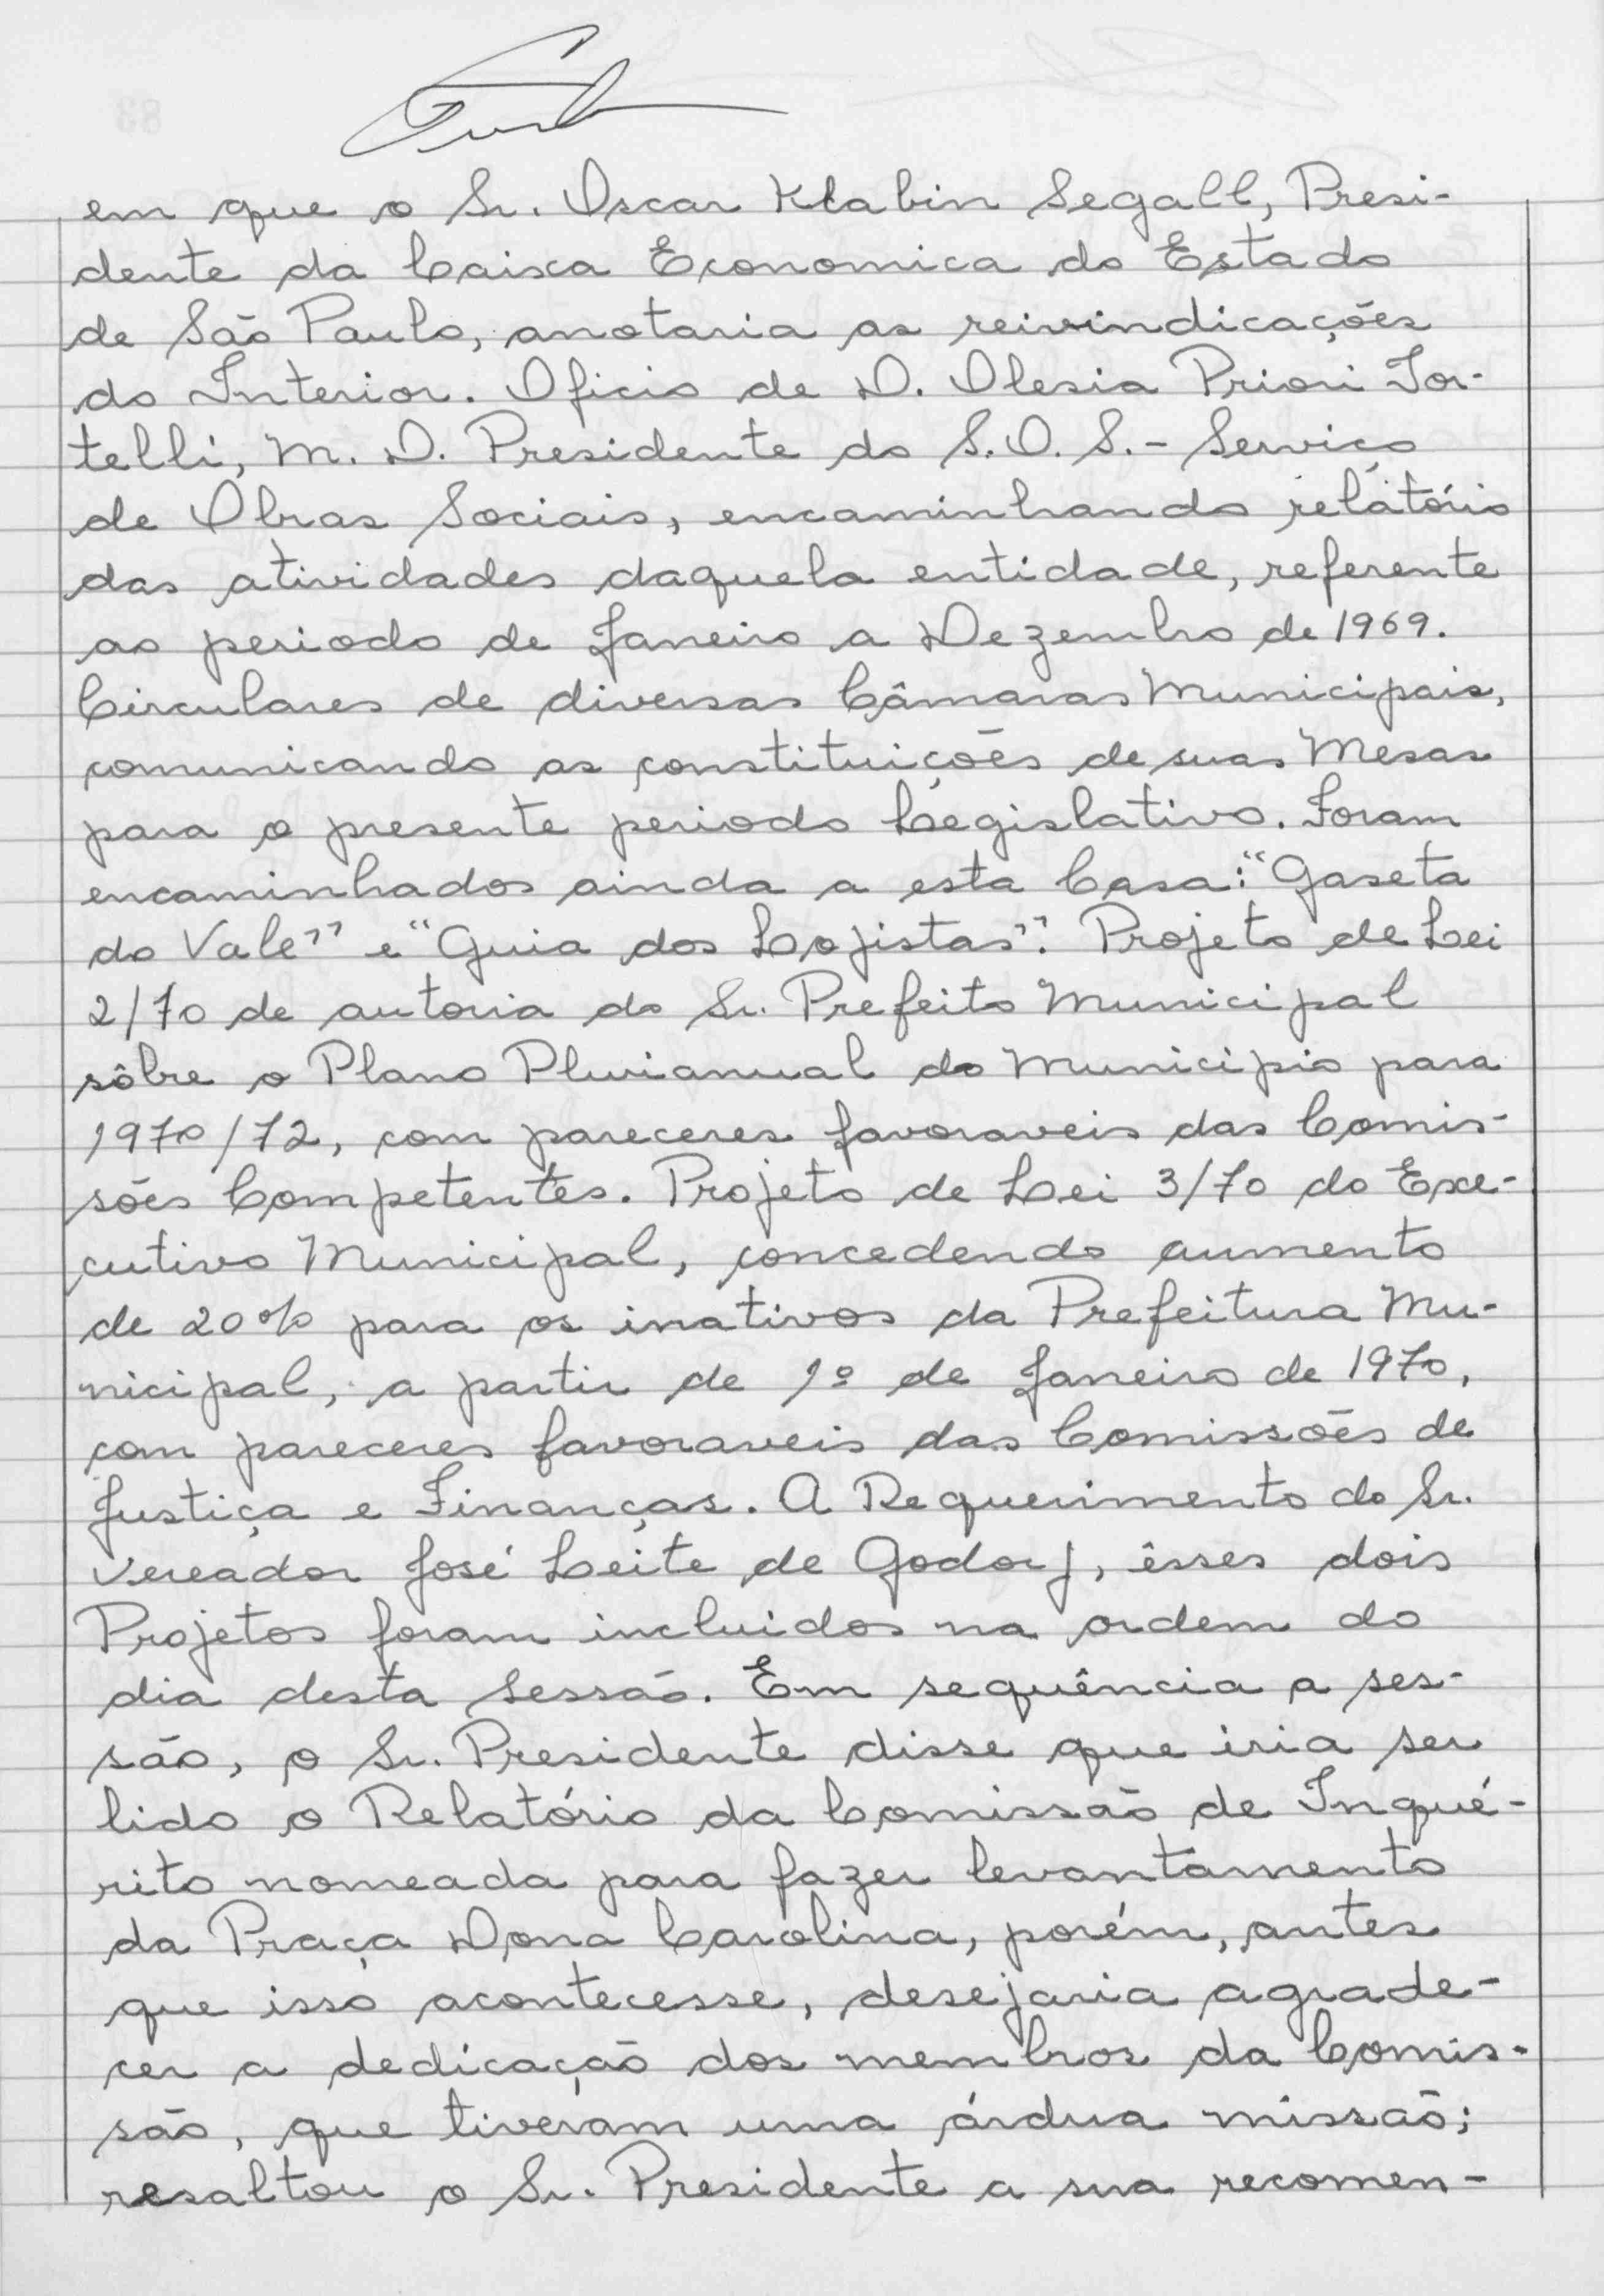 em que o Sr. Oscar Klabin Segall, Presi-
dente da Caixa Economica do Estado
de São Paulo, anotaria as reivindicações
do Interior. Oficio de D. Olesia Priori Tor-
telli, M. D. Presidente do S.O.S.- Serviço
de Obras Sociais, encaminhando relatório
das atividades daquela entidade, referente
ao periodo de Janeiro a Dezembro de 1969.
Circulares de diversas Câmaras Municipais,
comunicando as constituições de suas Mesas
para o presente periodo Legislativo. Foram
encaminhados ainda a esta Casa: "Gaseta
do Vale" e "Guia dos Lojistas". Projeto de Lei
2/70 de autoria do Sr. Prefeito Municipal
sôbre o Plano Pluvianual do Municipio para
1970/72, com pareceres favoraveis das Comis-
sões Competentes. Projeto de Lei 3/70 do Exe-
cutivo Municipal, concedendo aumento
de 20% para os inativos da Prefeitura Mu-
nicipal, a partir de 1º de Janeiro de 1970,
com pareceres favoraveis das Comissões de
Justiça e Finanças. A Requerimento do Sr.
Vereador José Leite de Godoy, êsses dois
Projetos foram incluidos na ordem do
dia desta Sessão. Em sequência a ses-
são, o Sr. Presidente disse que iria ser
lido o Relatório da Comissão de Inqué-
rito nomeada para fazer levantamento
da Praça Dona Carolina, porém, antes
que isso acontecesse, desejaria agrade-
cer a dedicação dos membros da Comis-
são, que tiveram uma árdua missão;
resaltou o Sr. Presidente a sua recomen-